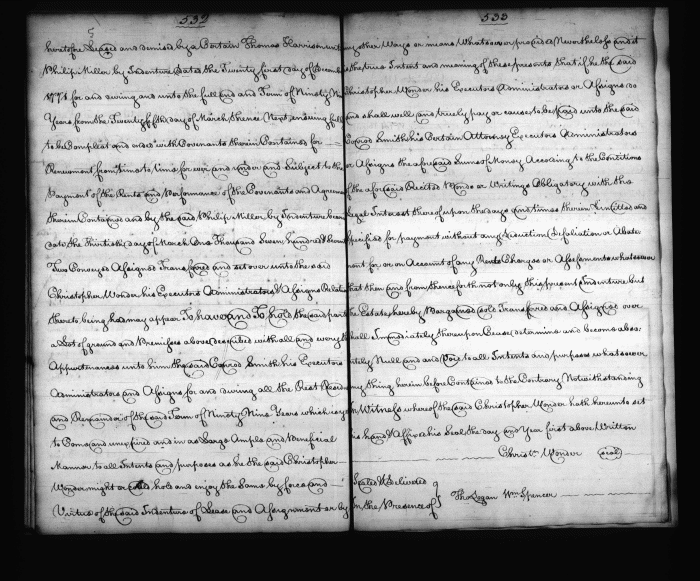 532
heretofore Leased and demised by a Certain Thomas Harrison unto
Philip Miller by Indenture dated the Twenty first day of December
1771 for and during and unto the full end and Term of Ninety Nine
Years from the Twenty fifth day of March thence Next ensuing fully
to be Compleat and ended with Covenants therein Contained for
Renewment from time to time for ever and under and Subject to the
Payment of the Rents and Performance of the Covenants and Agreem
therein Contained and by the said Philip Miller by Indenture bear
date the Thirtieth day of March One Thousand Seven hundred &
Two Conveyed Assigned Transfered and set over unto the said
Christopher Wonder his Executors Administrators & Assigns Relation
thereto being had may appear To have and To hold the said part
a Lot of ground and Premisses above described with all and every the
Appurtenances unto him the said Conrod Smith his Executors
Administrators and Assigns for and during all the Rest Residue
and Remainder of the said Term of Ninety Nine Years which is yet
to Come and unexpired and in as Large Ample and Beneficial
Manner to all Intents and purposes as he the said Christopher
Wonder might or could hold and enjoy the Same by force and
Virtue of the said Indenture of Lease and Assignment or by
533
any other Ways or means Whatsoever provided Nevertheless and it
is the true Intent and meaning of these presents that if he the said
Christopher Wonder his Executors Administrators or Assigns do
and shall well and truely pay or cause to be paid unto the said
Conrod Smith his Certain Attorney Executors Administrators
or Assigns the aforesaid Sums of Money According to the Conditions
of the aforesaid Recited Bonds or Writings Obligatory with the
legal Interest thereof upon the days and times therein Limitted and
specified for payment without any Deduction Defalcation or Abate
ment for or on Account of any Rents Charges or Assessments whatsoever
that then and from thenceforth not only this present Indenture but
the Estate hereby Bargained sold Transfered and Assigned over
shall Immediately thereupon Cease determine and become abso:
lutely Null and and Void to all Intents and purposes whatsoever
any thing herein before Contained to the Contrary Notwithstanding
In Witness whereof the said Christopher Wonder hath hereunto set
his hand & Affixed his Seal the day and Year first above Written
Christr. Wonder seal
Sealed & Delivered
In the Presence of } Tho Logan Wm Spencer